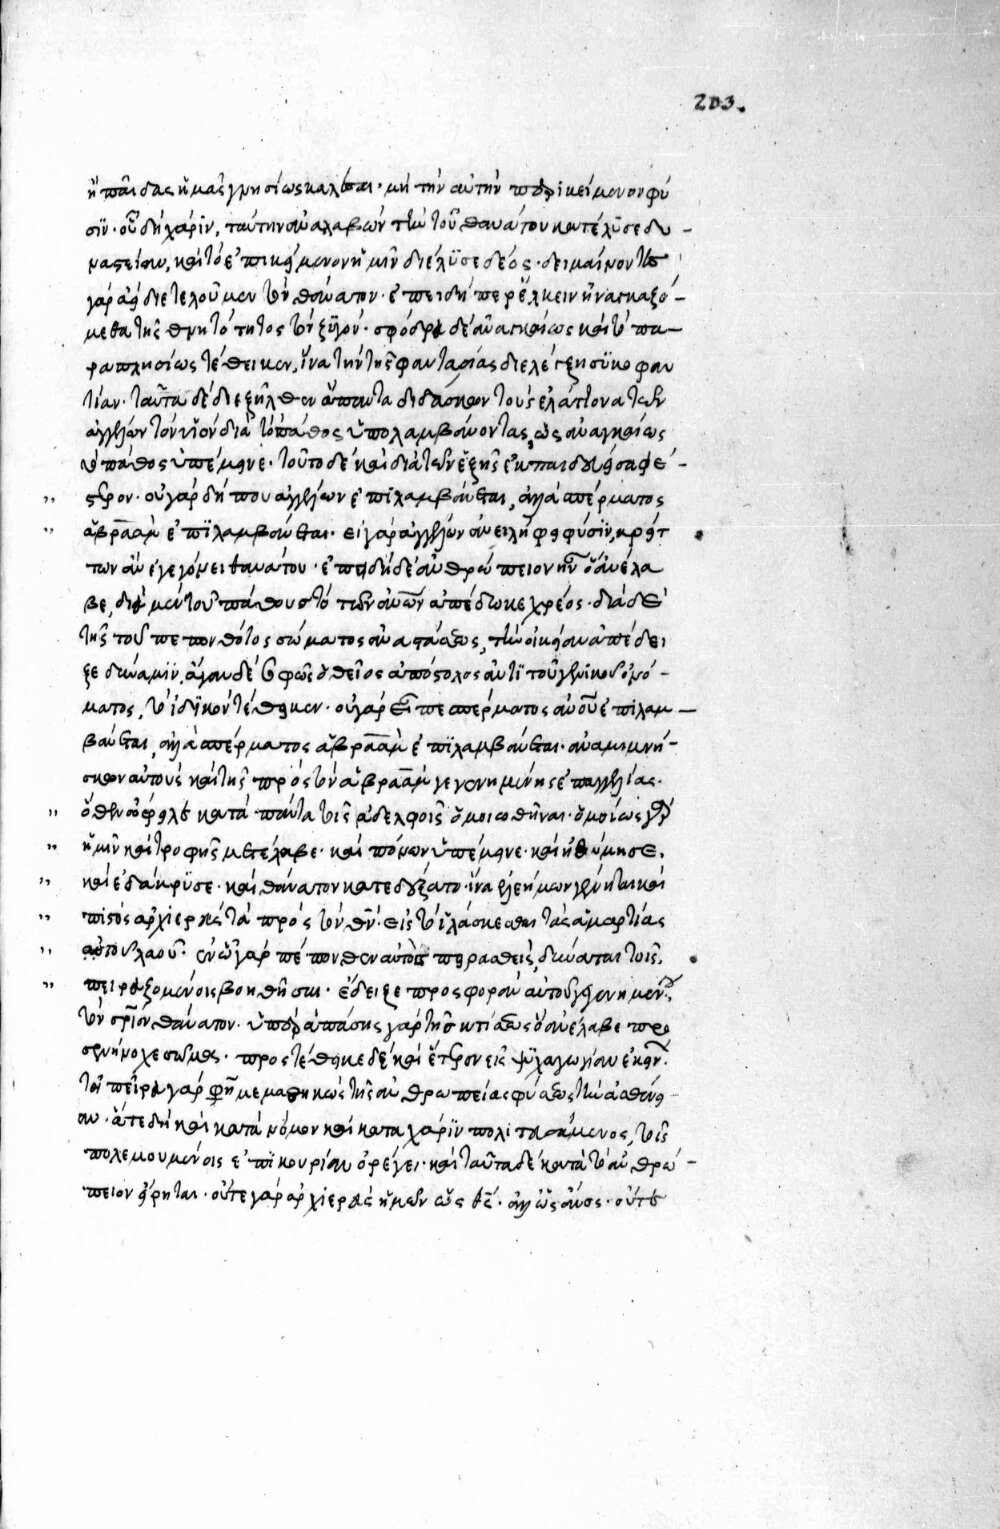 203.
ἢ παῖδας ἡμᾶς γνησίως καλεῖται· μὴ τὴν αὐτὴν περικείμενον φύ
σϊν· οὗ δὴ χάρϊν, ταύτην ἀναλαβὼν τὴν τοῦ θανάτου κατέλϋσε δυ
ναστείαν, καὶ τὸ ἐπικείμενον ἡμῖν διέλϋσε δέος· δειμαίνοντες
γὰρ ἀεὶ διετελοῦμεν τὸν θάνατον· ἐπειδήπερ ἕλκειν ἠναγκαζό
μεθα τῆς θνητότητος τὸν ζϋγόν· σφόδρα δὲ ἀναγκαίως καὶ τὸ πα
ραπλησίως τέθεικεν, ἵνα τὴν τῆς φαντασίας διελέγξη συκοφαν
τίαν· ταῦτα δὲ διεξῆλθεν ἅπαντα διδάσκων τοὺς ἐλάττονα τῶν
ἀγγέλων τὸν υἱὸν διὰ τὸ πάθος ὑπολαμβάνοντας, ὡς ἀναγκαίως
τὸ πάθος ὑπέμεινε· τοῦτο δὲ καὶ διὰ τῶν ἑξῆς ἐκπαιδεύει σαφέ
στερον· οὐ γὰρ δήπου ἀγγέλων ἐπϊλαμβάνεται, ἀλλὰ σπέρματος
ἀβραὰμ ἐπϊλαμβάνεται· εἰ γὰρ ἀγγέλων ἀνειλήφει φύσϊν, κρείτ
των ἂν ἐγεγόνει θανάτου· ἐπειδὴ δὲ ἀνθρώπειον ἦν ὃ ἀνέλα
βε, διὰ μὲν τοῦ πάθους τὸ τῶν ἀνων ἀπέδωκε χρέος· διὰ δὲ
τῆς τοῦ πεπονθότος σώματος ἀναστάσεως, τὴν οἰκείαν ἀπέδει
ξε δύναμϊν, ἄγαν δὲ σαφῶς ὁ θεῖος ἀπόστολος ἀντὶ τοῦ γενικοῦ ὀνό
ματος, τὸ ἰδϊκὸν τέθεικεν· οὐ γὰρ εἶπε σπέρματος ἀνου ἐπϊλαμ
βάνεται, ἀλλὰ σπέρματος ἀβραὰμ ἐπϊλαμβάνεται· ἀναμιμνή
σκων αὐτοὺς καὶ τῆς πρὸς τὸν ἀβραὰμ γεγενημένης ἐπαγγελίας·
ὅθεν ὤφειλε κατὰ πάντα τοῖς ἀδελφοῖς ὁμοιωθῆναι· ὁμοίως γὰρ
ἡμῖν καὶ τροφῆς μετέλαβε· καὶ πόνων ὑπέμεινε· καὶ ἠθύμησε,
καὶ ἐδάκρϋσε· καὶ θάνατον κατεδέξατο· ἵνα ἐλεήμων γένηται καὶ
πιστὸς ἀρχιερεὺς τὰ πρὸς τὸν θν· εἰς τὸ ἱλάσκεσθαι τὰς ἁμαρτίας
αὐτοῦ λαοῦ· ἐν ᾧ γὰρ πέπονθεν αὐτὸς πειρασθεὶς, δύναται τοῖς
πειραζομένοις βοηθῆσαι· ἔδειξε προσφορὰν αὐτοῦ γεγενημένον
τὸν σριον θάνατον· ὑπὲρ ἁπάσης γὰρ τῆς κτίσεως ὃ ἀνέλαβε προ
σενήνοχε σῶμα· προστέθεικε δὲ καὶ ἕτερον εἰς ψϋχαγωγίαν ἐκείνων·
τῇ πείρα γὰρ φη μεμαθηκὼς τῆς ἀνθρωπείας φύσεως τὴν ἀσθένει
αν· ἅτε δὴ καὶ κατὰ νόμον καὶ κατὰ χάρϊν πολιτευσάμενος, τοῖς
πολεμουμένοις ἐπϊκουρίαν ὀρέγει· καὶ ταῦτα δὲ κατὰ τὸ ἀνθρώ
πειον εἴρηται· οὔτε γὰρ ἀρχιερεὺς ἡμῶν ὡς θς· ἀλλ' ὡς ἀνος· οὔτε